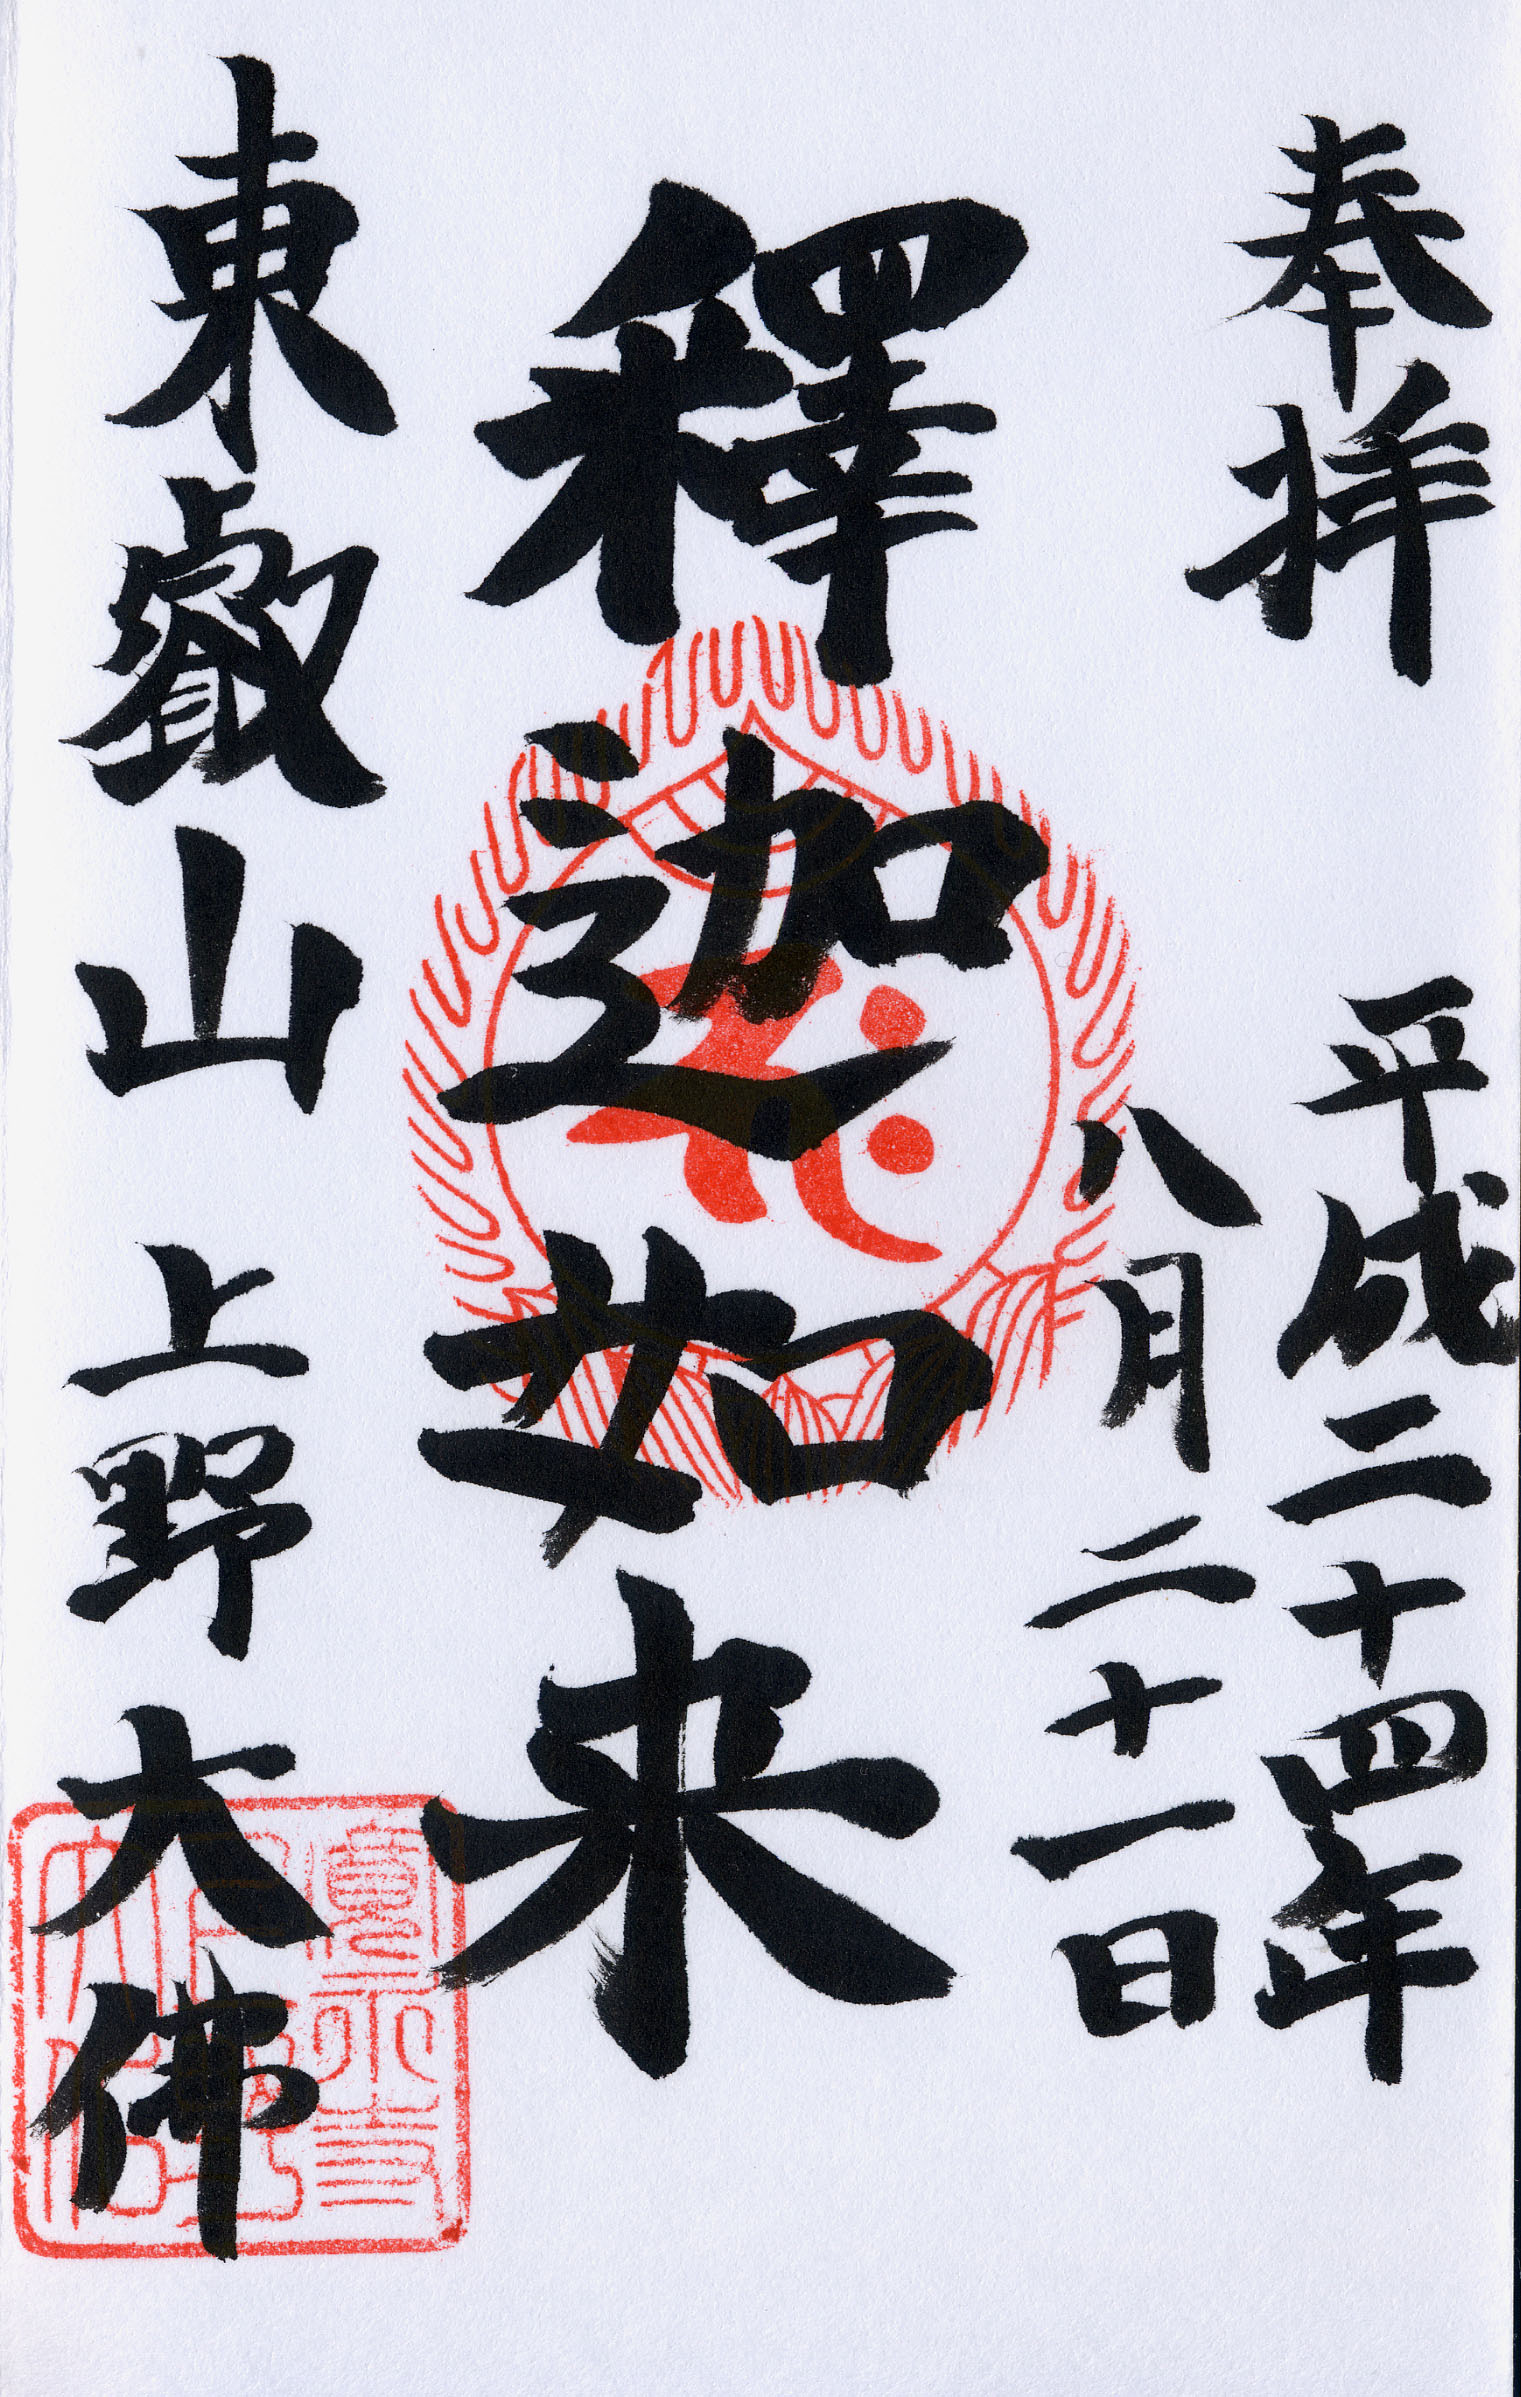 奉拝
平成二十四年
八月二十一日
釋迦如来
東叡山 上野大佛